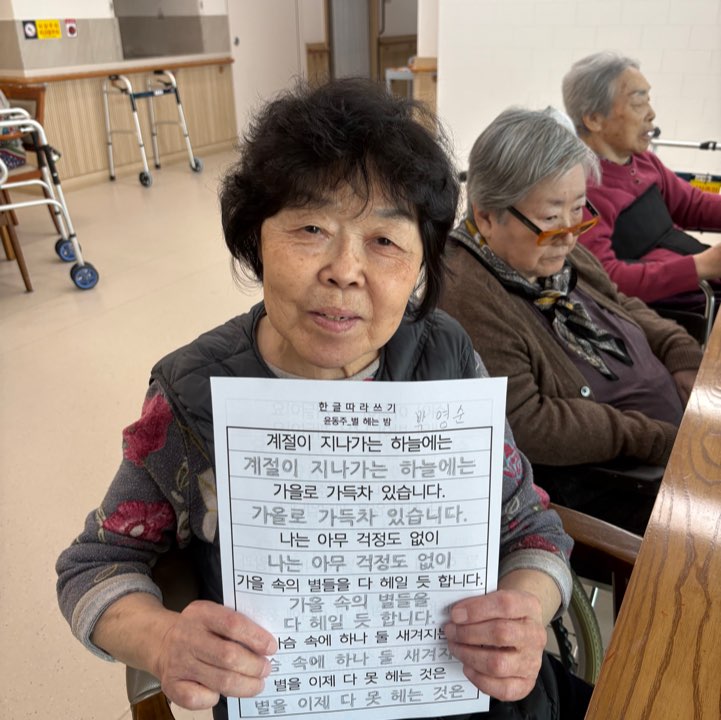 한글따라쓰기
윤동주_별 헤는 밤 박영순
계절이 지나가는 하늘에는
계절이 지나가는 하늘에는
가을로 가득차 있습니다.
가을로 가득차 있습니다.
나는 아무 걱정도 없이
나는 아무 걱정도 없이
가을 속의 별들을 다 헤일 듯 합니다.
가을 속의 별들을
다 헤일 듯 합니다.
슴 속에 하나 둘 새겨지는
속에 하나 둘 새겨지
별을 이제 다 못 헤는 것은
별을 이제 다 못 헤는 것은